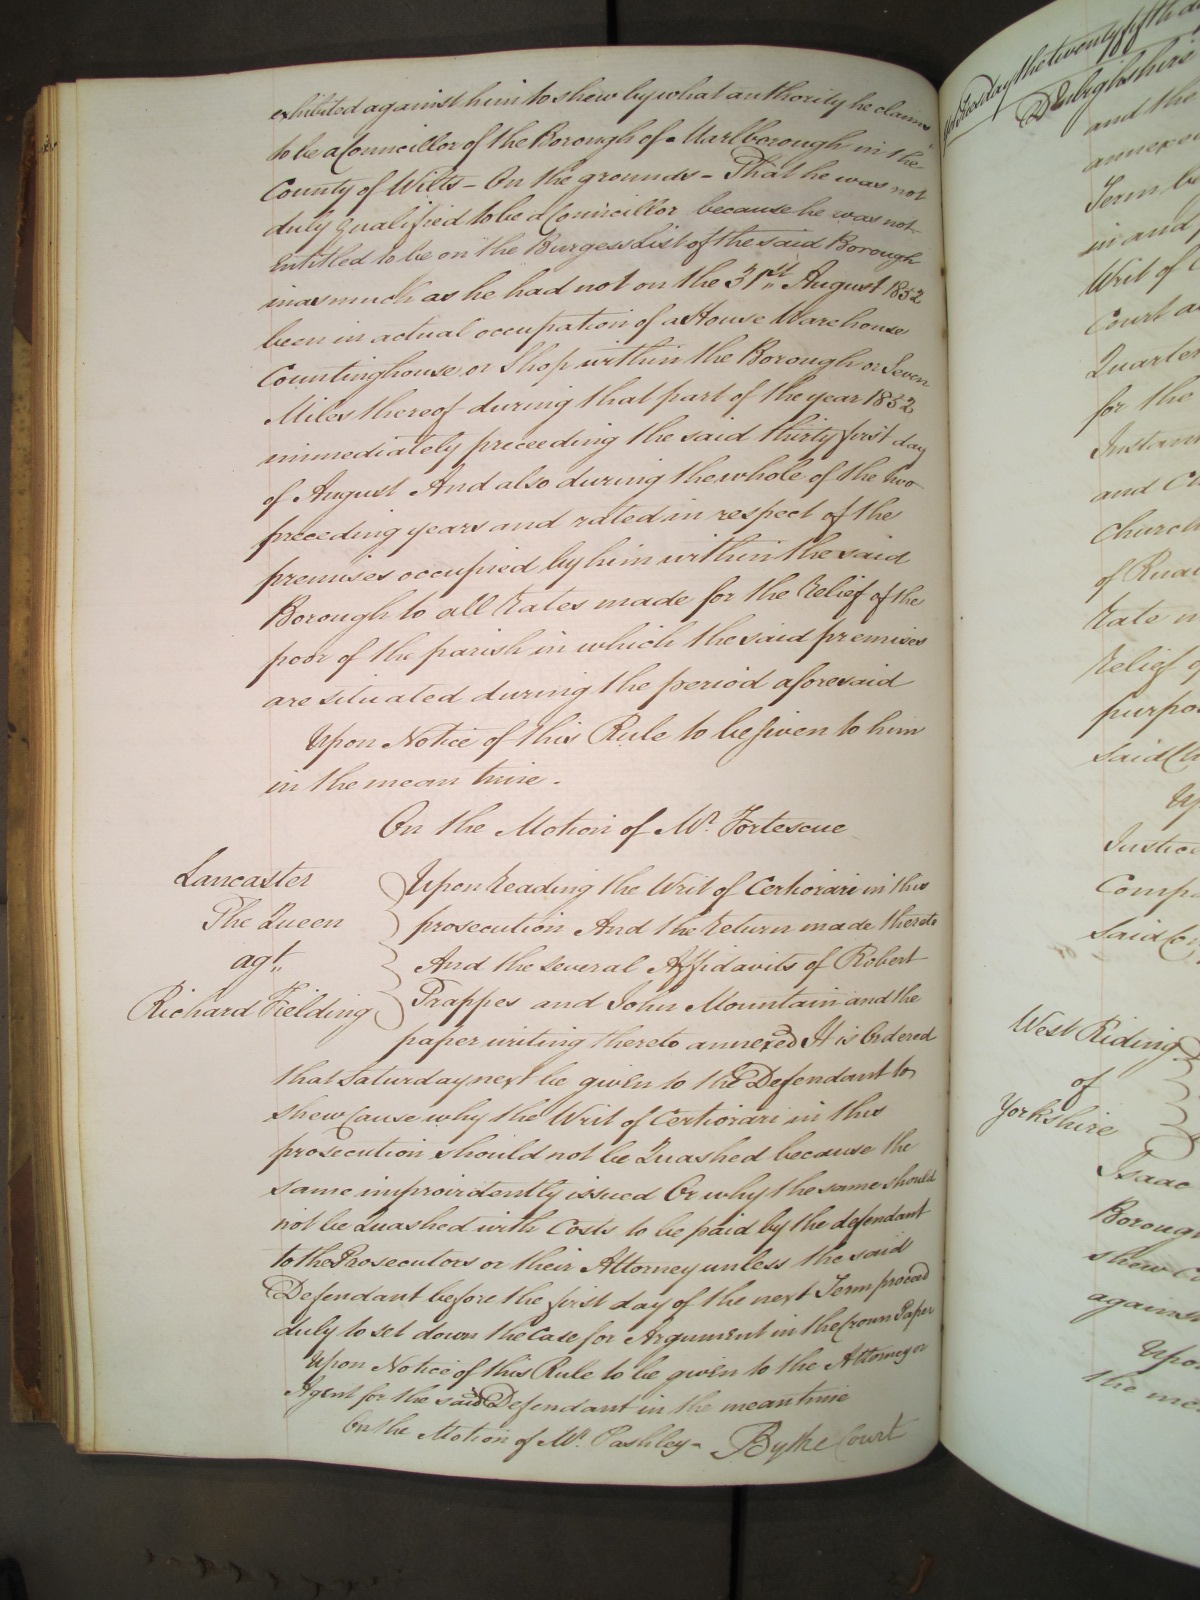 exhibited against him to shew by what authority he claims
to be a Councillor of the Borough of Marlborough in the
County of Wilts - On the grounds - That he was not
duly qualified to be a Councillor because he was not
entitled to be on the Burgess List of the said Borough
inasmuch as he had not on the 31st August 1852
been in actual occupation of a House Warehouse
Countinghouse or Shop within the Borough or Seven
Miles thereof during that part of the year 1852
immediately preceeding the said thirty first day
of August And also during the whole of the two
preceding years and rated in respect of the
premises occupied by him within the said
Borough to all Rates made for the Relief of the
poor of the parish in which the said premises
are situated during the period aforesaid
Upon Notice of this Rule to be given to him
in the mean time .
On the Motion of Mr. Fortescue
Lancaster
The Queen
agt.
Richard Fielding
Upon Reading the Writ of Certiorari in this
prosecution And the Return made thereto
And the several Affidavits of Robert
Trappes and John Mountain and the
paper writing thereto annexed It is Ordered
that Saturday next be given to the Defendant to
shew Cause why the Writ of Certiorari in this
prosecution should not be Quashed because the
same improvidently issued Or why the same should
not be Quashed with Costs to be paid by the defendant
to the Prosecutors or their Attorney unless the said
Defendant before the first day of the next Term proceed
duly to set down the Case for Argument in the Crown Paper
Upon Notice of this Rule to be given to the Attorney or
Agent for the said Defendant in the meantime
On the Motion of Mr. Pashley - By the Court
Yesterday the twenty fifth
Denbighshire
and the
annexed
Term be
in and
Writ of
Court
Quarter
for the
Instant
and
Church
of
Rate
Relief
purpo
said
Up
Justice
Comp
said
West Riding
of
Yorkshire
Isaac
Borough
shew
against
Upo
the me